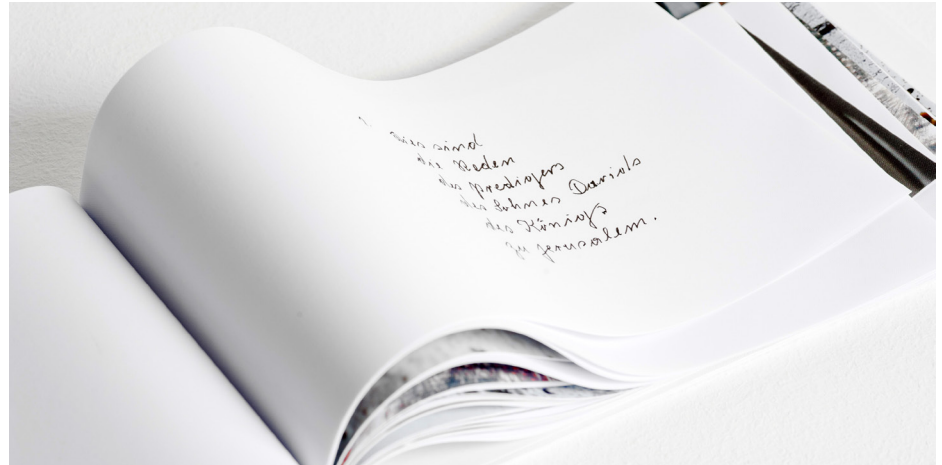 1 dies sind
die Reden
des predigers
des Sohnes Davids
des Königs
zu jerusalem.